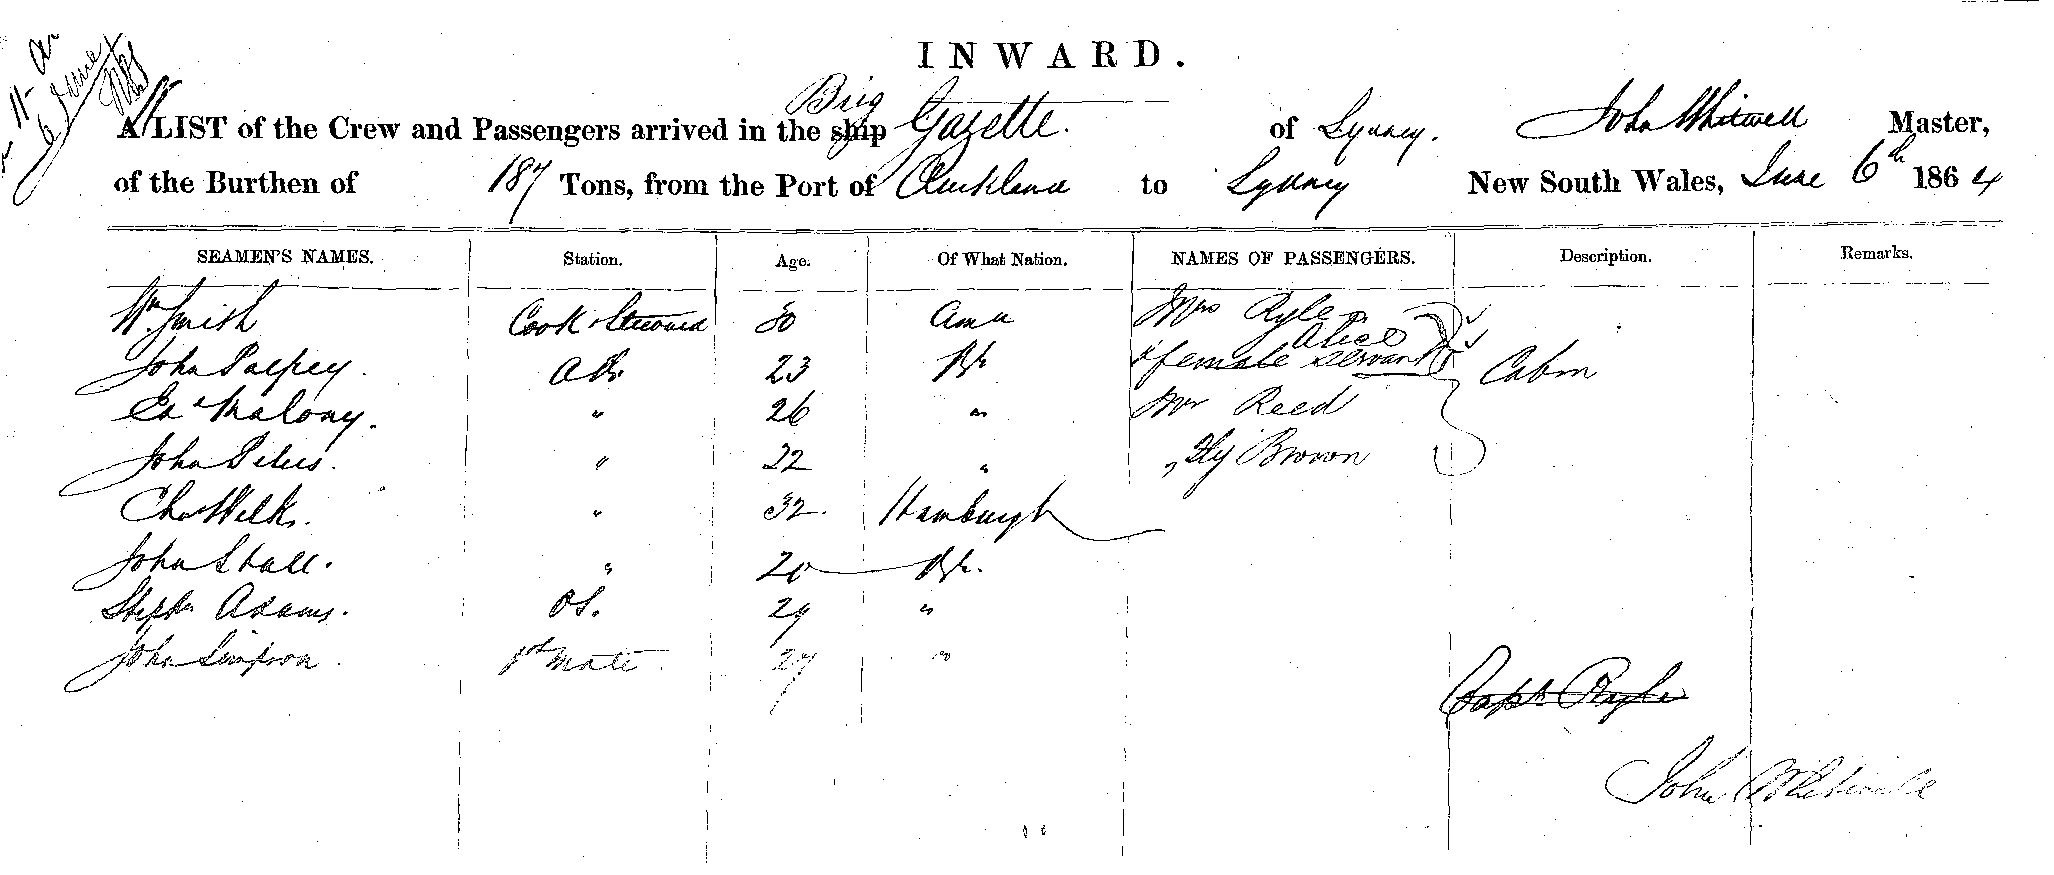 INWARD.
6 June
Brig
A LIST of the Crew and Passengers arrived in the ship Gazette. of Sydney. John Whitwell Master,
of the Burthen of 187 Tons, from the Port of Auckland to Sydney New South Wales, June 6th 1864
SEAMEN'S NAMES. Station. Age. Of What Nation. NAMES OF PASSENGERS. Description. Remarks.
Wm Smith Cook & Steward 30 Mrs Ryle
Alice
John Palfrey. AB. 23 Br. & female servant Cabin
Ed Malony. " 26 " Mr Reed
John " 22 " " Hy Brown
Chas Wilk. " 32 Hamburgh
John Stall. " 20 Br.
Stephn Adams. OS. 29 "
John Simpson. 1st Mate 27 "
Capt Ryle
John Whitwell